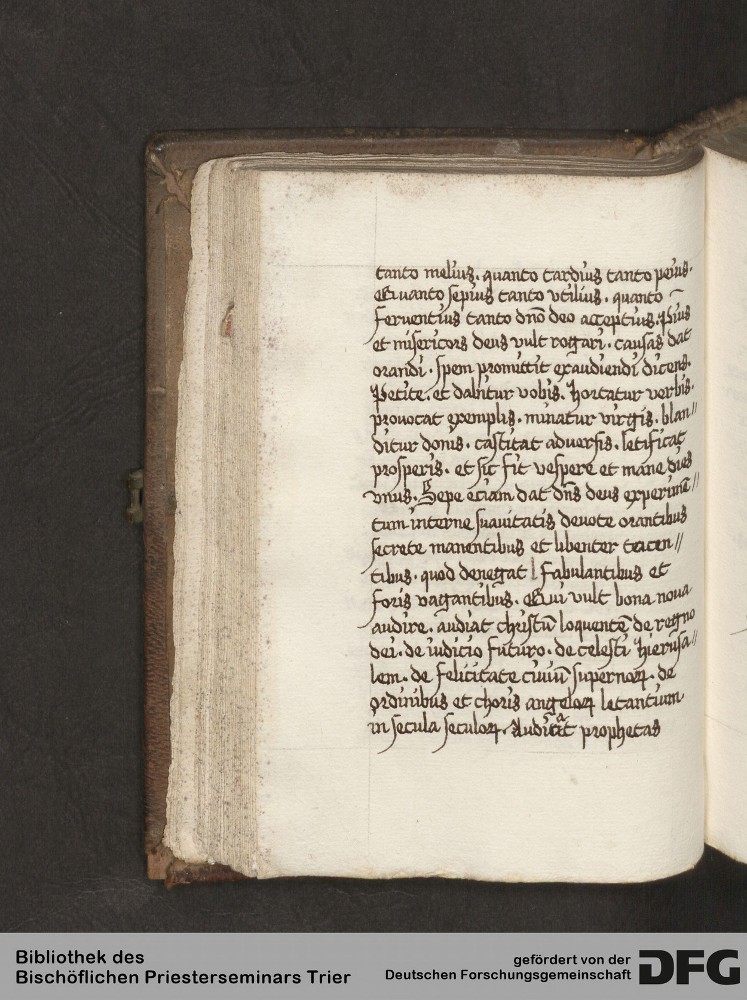 tanto melius. quanto tardius tanto peius.
Quanto sepius tanto vtilius. quanto
feruentius tanto dnō deo acceptius. Pius
et misericors deus vult rogari. causas dat
orandi. spem promittit exaudiendi dicens.
Petite. et dabitur vobis. hortatur verbis.
prouocat exemplis. minatur virgis. blan//
ditur donis. castitat aduersis. letificat
prosperis. et sic fit vespere et mane dies
vnus. Sepe eciam dat dn̄s deus experimē//
tum interne suauitatis deuote orantibus
secrete manentibus et libenter tacen//
tibus. quod denegat fabulantibus et
foris vagantibus. Qui vult bona noua
audire. audiat christū loquentē de regno
dei. de iudicio futuro. de celesti Hierusa//
lem. de felicitate ciuiū supernoꝝ. de
ordinibus et choris angeloꝝ letantium
in secula seculoꝝ. Audiat prophetas
Bibliothek des
Bischöflichen Priesterseminars Trier
gefördert von der
Deutschen Forschungsgemeinschaft
DFG